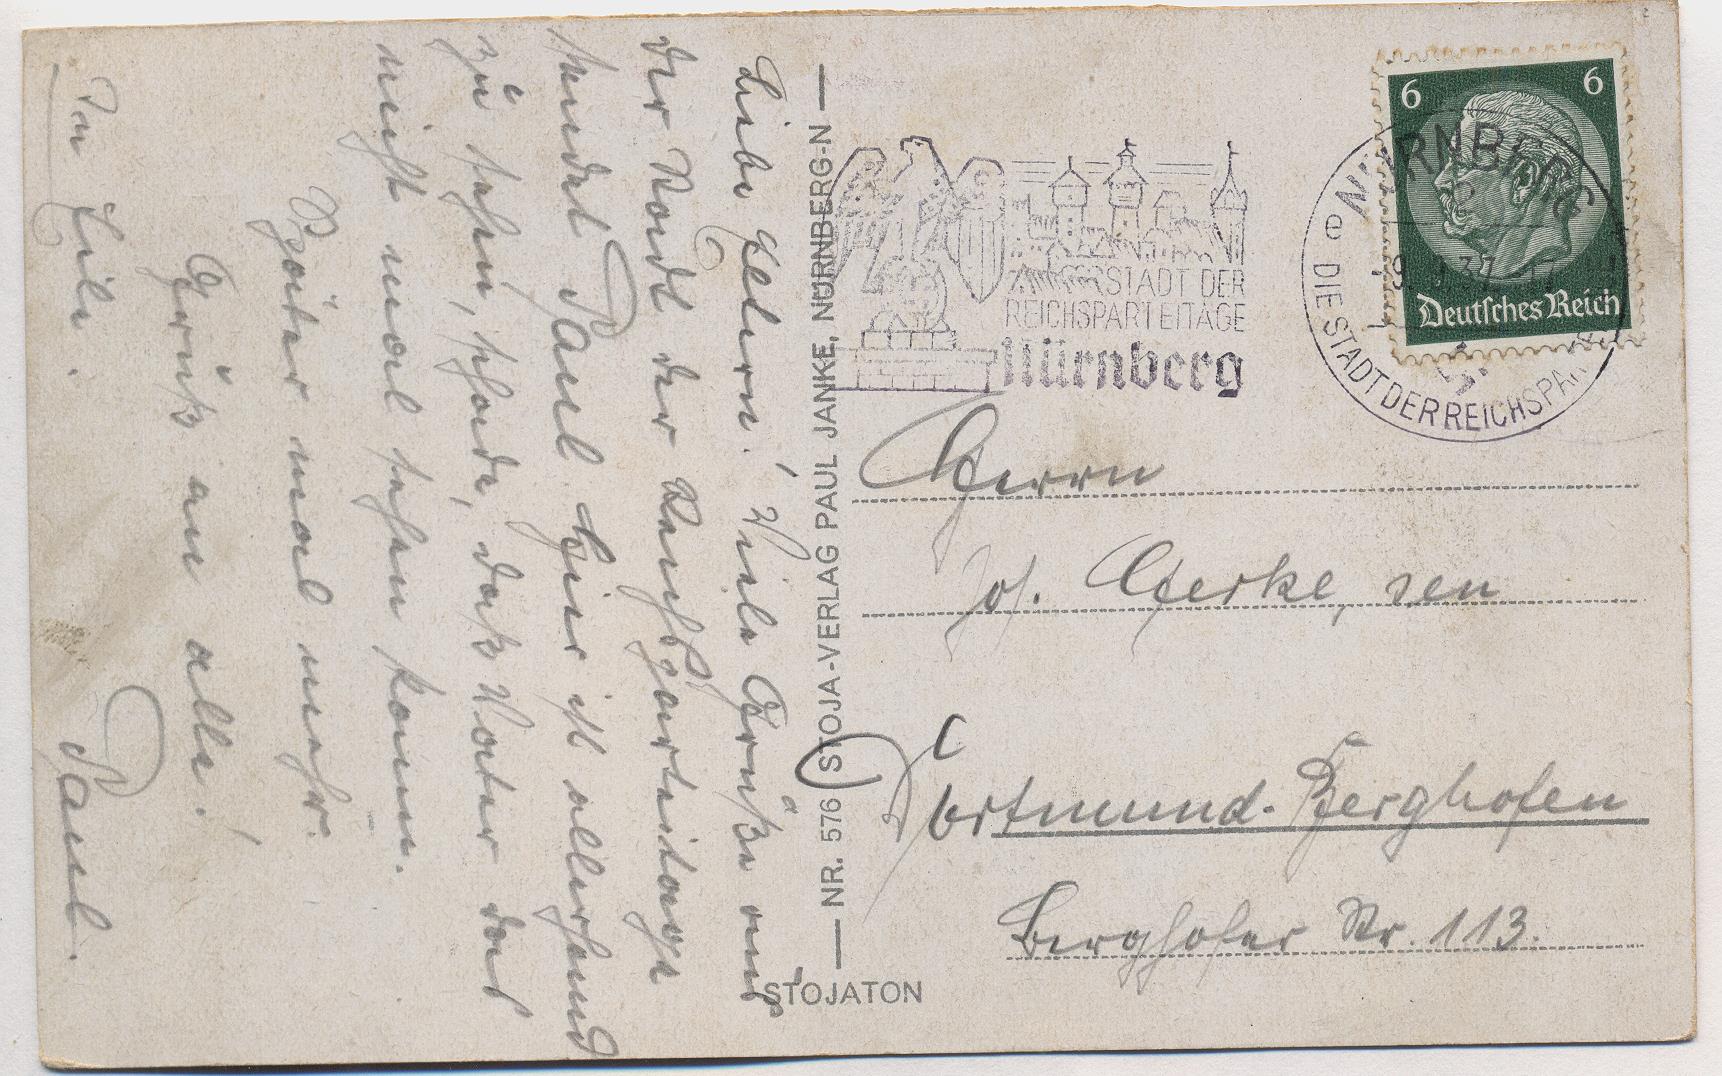 Liebe Eltern! Viele Grüße aus
der Stadt der Reichsparteitage
sendet Paul. Hier ist allerhand
zu sehen, schade, daß Vater das
nicht mal sehen kann.
Später mal mehr.
Gruß an alle!
In Eile. Paul.
NR. 576 STOJA-VERLAG PAUL JANKE, NÜRNBERG-N
STOJATON
STADT DER
REICHSPARTEITAGE
Nürnberg
6 6
Deutsches Reich
NÜRNBERG
DIE STADT DER REICHSPAR
Herrn
Joh. Gerke, sen
Dortmund-Berghofen
Berghofer Str. 113.